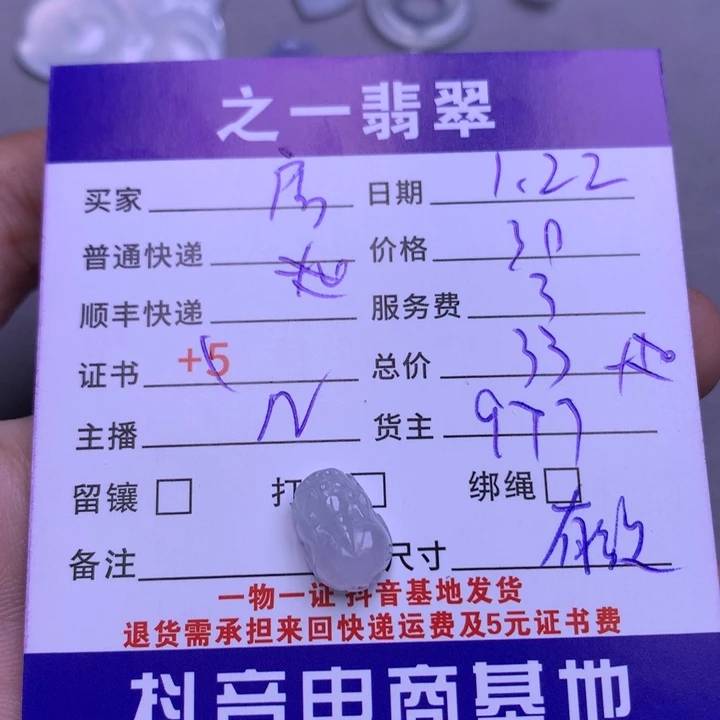 之一翡翠
买家 日期 1.22
普通快递 价格 30
顺丰快递 服务费 3
证书 +5 总价 33
主播 N 货主 977
留镶 打 绑绳
备注 尺寸 有纹
一物一证 抖音基地发货
退货需承担来回快递运费及5元证书费
抖音电商基地